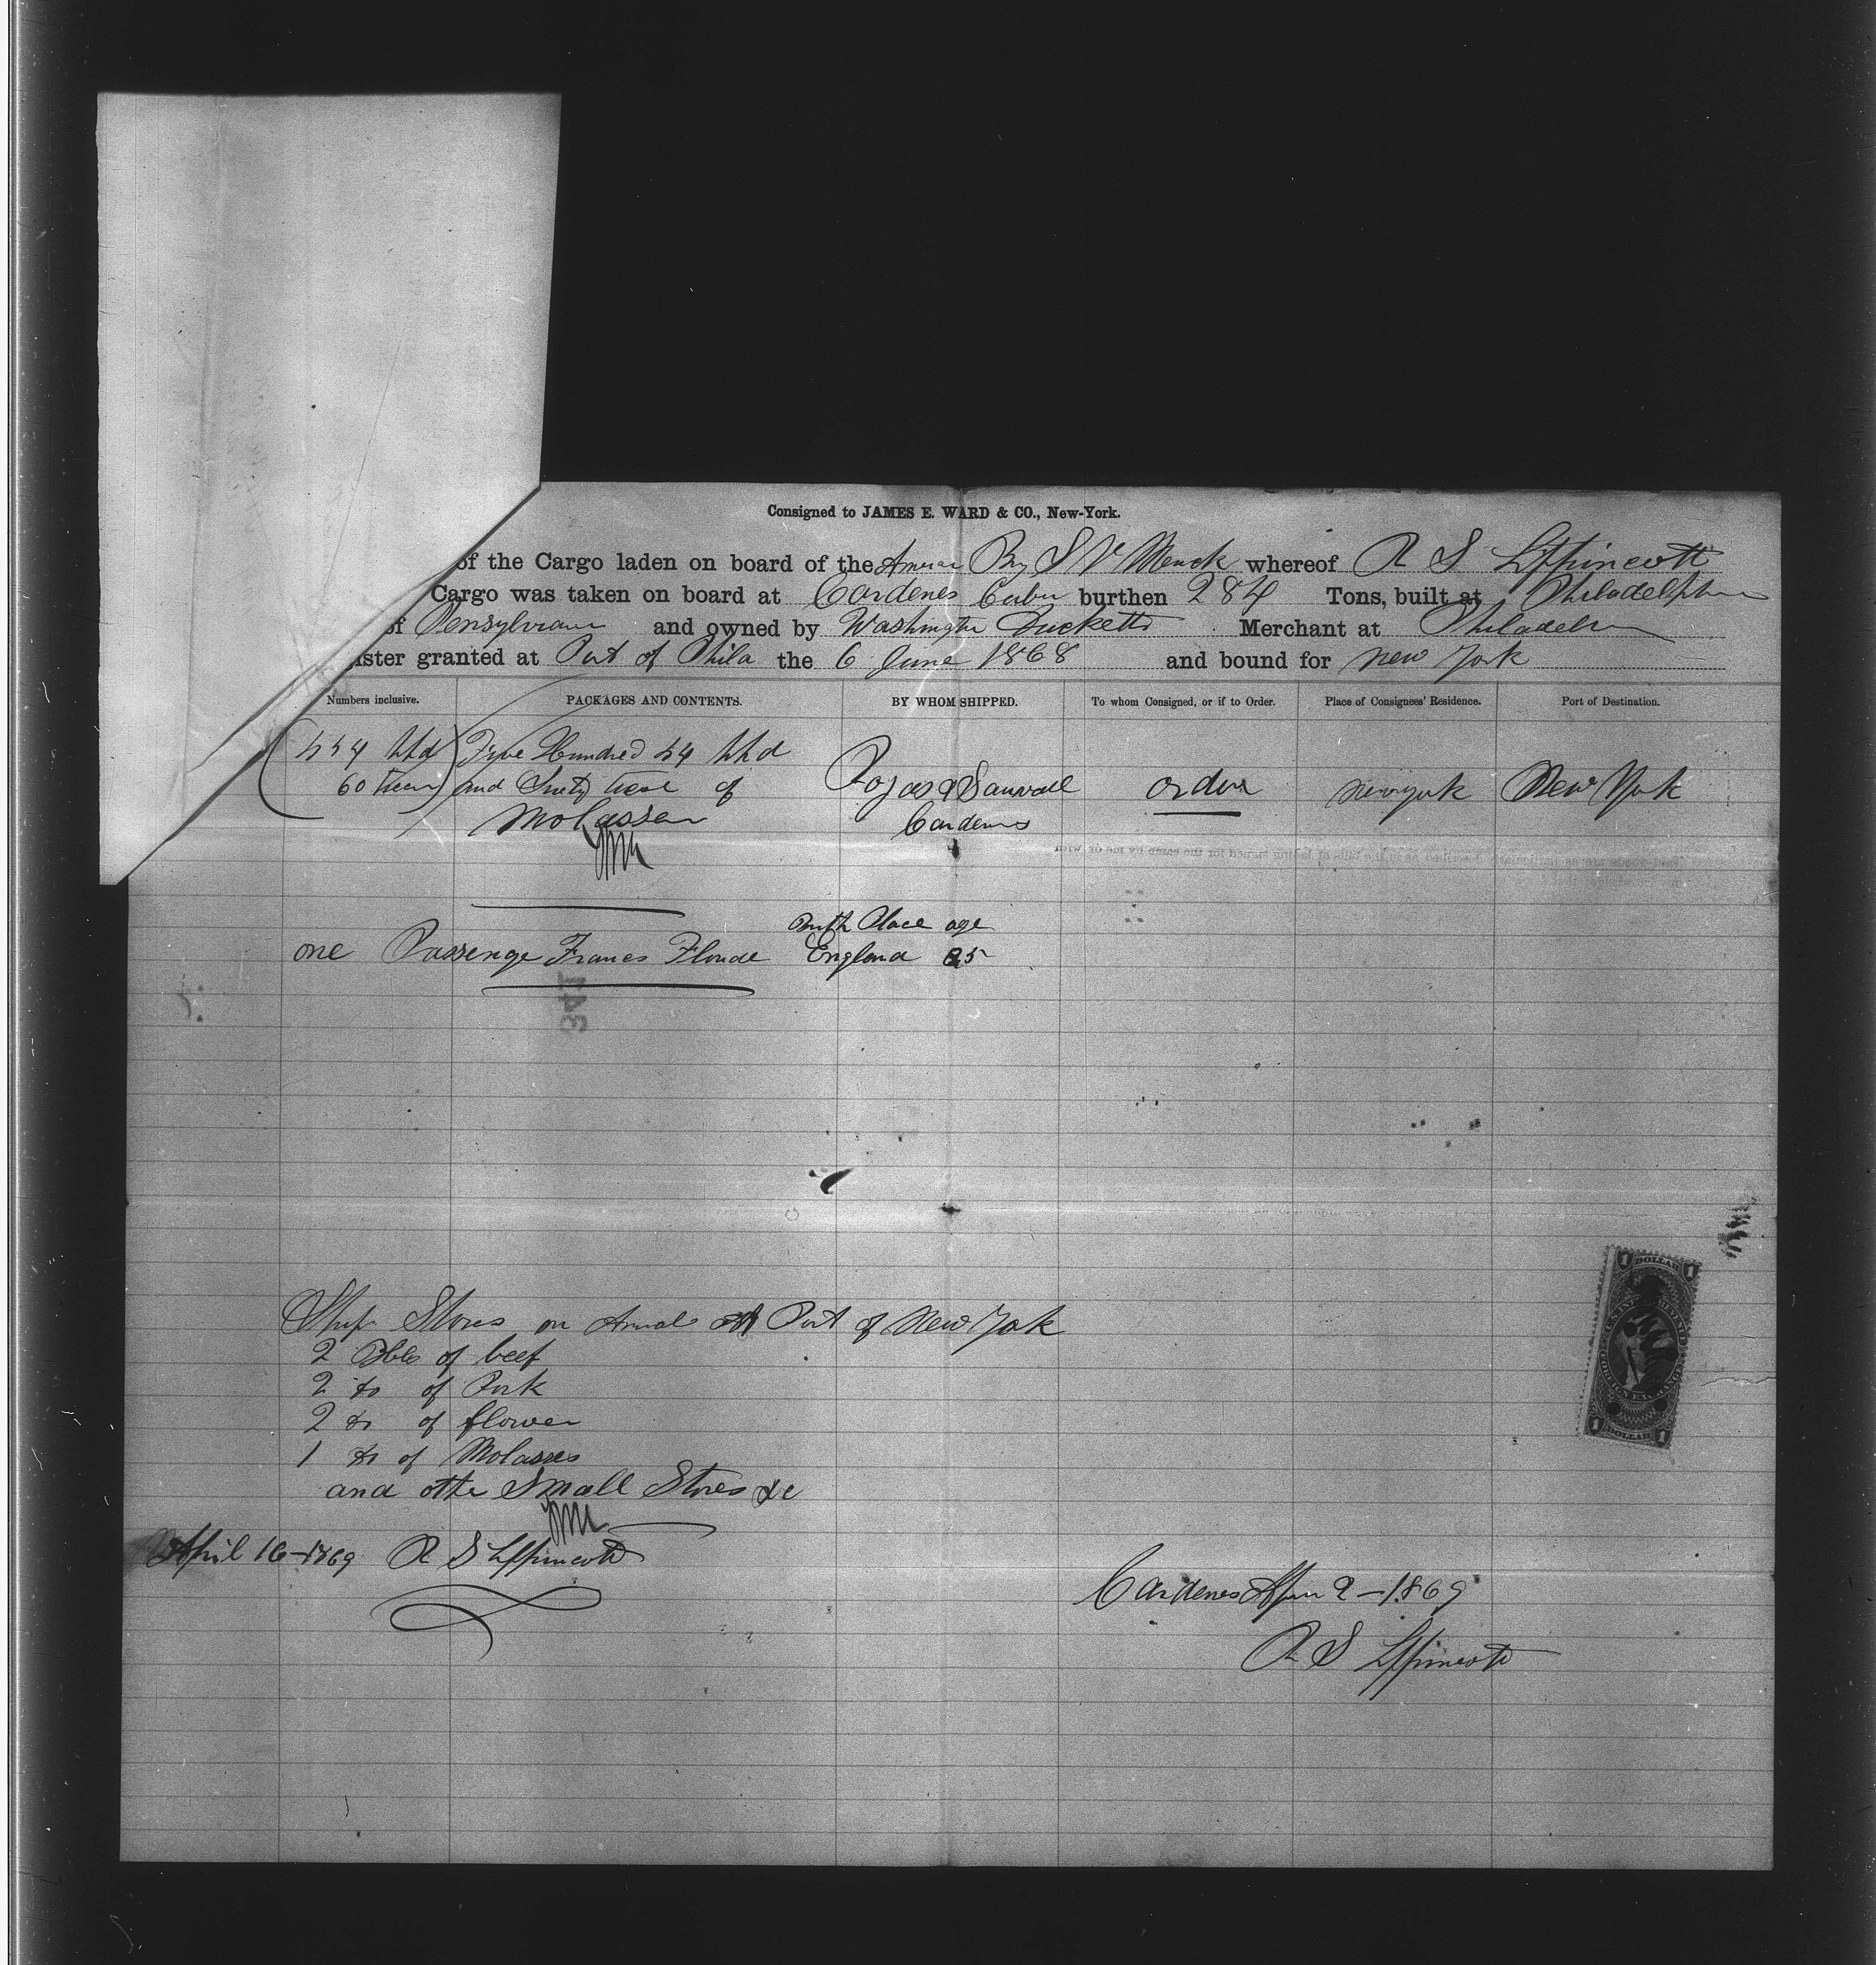 Consigned to JAMES E. WARD & CO., New-York.
of the Cargo laden on board of the Brig S V Merrick whereof R S Lippincott
Cargo was taken on board at Cardenes Cuba burthen 284 Tons, built at Philadelphia
of Pensylvani and owned by Washington Merchant at Philadel
ister granted at Port of Phila the 6 June 1868 and bound for New York
Numbers inclusive. PACKAGES AND CONTENTS. BY WHOM SHIPPED. To whom Consigned, or if to Order. Place of Consignees' Residence. Port of Destination.
554 hhd Five Hundred 54 hhd
60 and Sixty of Rojas & order New York New York
Molasses Cardenes
Birth Place age
one Passenge Frances England
341
Ship Stores on Arrival at Port of New York
2 Bbls of beef
2 do of Pork
2 do of flower
1 do of Molasses
and other Small Stores &c
April 16-1869 R S Lippincott
Cardenes 9-1869
R S Lippincott
1 DOLLAR 1
U.S. INTER. REVENUE
FOREIGN EXCHANGE
1 DOLLAR 1